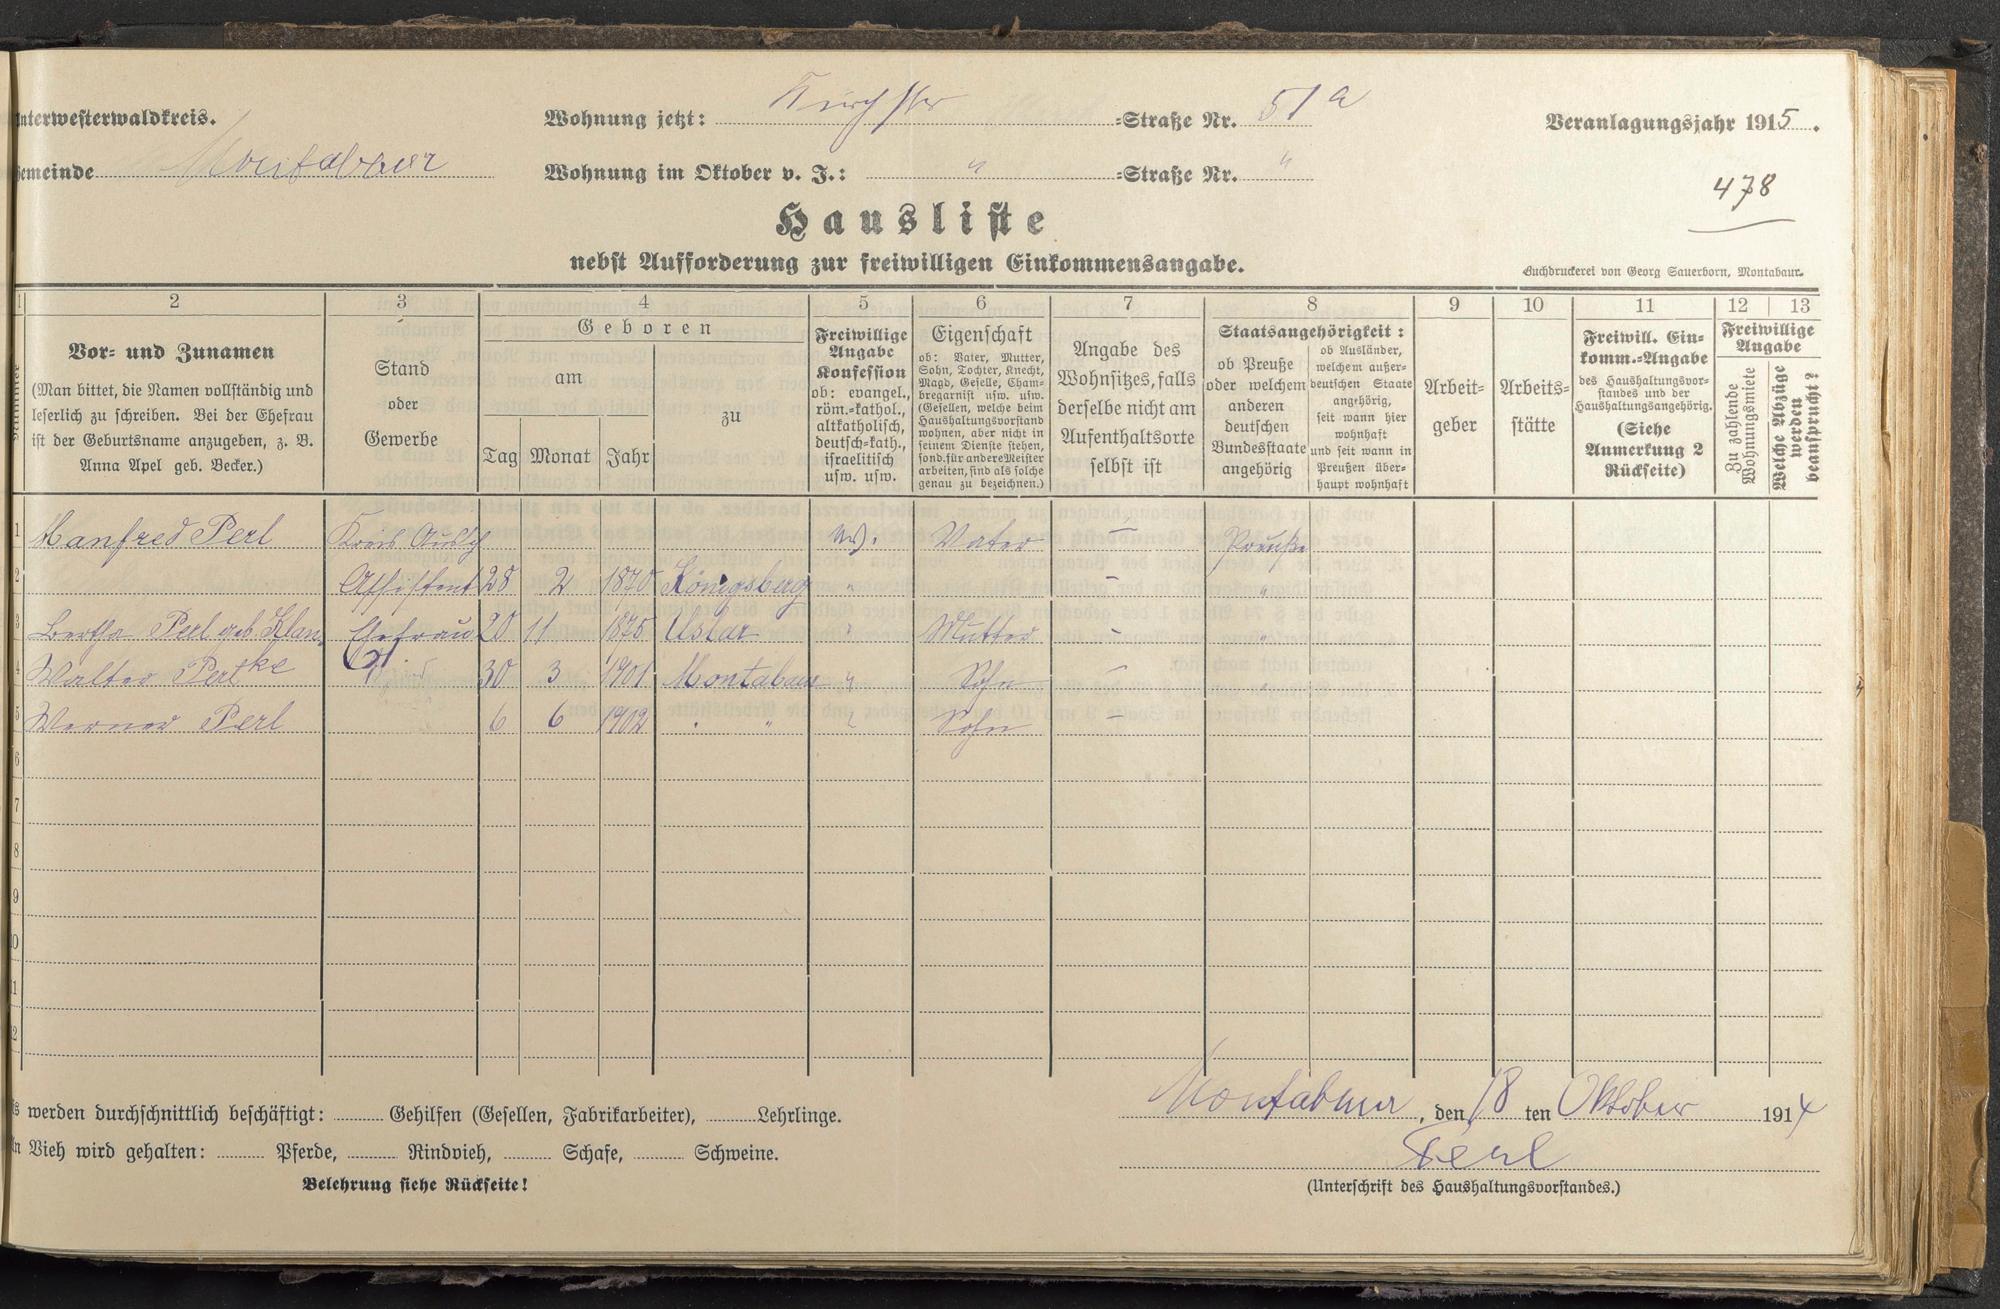 nterwesterwaldkreis.
Wohnung jetzt: Kirchstr -Straße Nr. 51a
Veranlagungsjahr 1915.
emeinde Montabaur
Wohnung im Oktober v. J.: " -Straße Nr. "
478
Hausliste
nebst Aufforderung zur freiwilligen Einkommensangabe.
Buchdruckerei von Georg Sauerborn, Montabaur.
1 2 3 4 5 6 7 8 9 10 11 12 13
Nummer
Vor- und Zunamen
(Man bittet, die Namen vollständig und
leserlich zu schreiben. Bei der Ehefrau
ist der Geburtsname anzugeben, z. B.
Anna Apel geb. Becker.)
Stand
oder
Gewerbe
Geboren
am
zu
Tag Monat Jahr
Freiwillige
Angabe
Konfession
ob: evangel.,
röm.-kathol.,
altkatholisch,
deutsch-kath.,
israelitisch
usw. usw.
Eigenschaft
ob: Vater, Mutter,
Sohn, Tochter, Knecht,
Magd, Geselle, Cham-
bregarnist usw. usw.
(Gesellen, welche beim
Haushaltungsvorstand
wohnen, aber nicht in
seinem Dienste stehen,
sond. für andere Meister
arbeiten, sind als solche
genau zu bezeichnen.)
Angabe des
Wohnsitzes, falls
derselbe nicht am
Aufenthaltsorte
selbst ist
Staatsangehörigkeit:
ob Preuße
oder welchem
anderen
deutschen
Bundesstaate
angehörig
ob Ausländer,
welchem außer-
deutschen Staate
angehörig,
seit wann hier
wohnhaft
und seit wann in
Preußen über-
haupt wohnhaft
Arbeit-
geber
Arbeits-
stätte
Freiwill. Ein-
komm.-Angabe
des Haushaltungsvor-
standes und der
Haushaltungsangehörig.
(Siehe
Anmerkung 2
Rückseite)
Freiwillige
Angabe
Zu zahlende
Wohnungsmiete
Welche Abzüge
werden
beansprucht?
1 Manfred Perl Kreis Aussch Vater - Preuße
2 Assistent 28 2 1870 Königsberg " - "
3 Bertha Perl geb. Klan Ehefrau 20 11 1875 Uslar " Mutter - "
ke
4 Walter Perl 30 3 1901 Montabaur " Sohn - "
5 Werner Perl 6 6 1902 " " " Sohn -
6
7
8
9
10
11
12
s werden durchschnittlich beschäftigt: Gehilfen (Gesellen, Fabrikarbeiter), Lehrlinge.
Montabaur, den 18 ten Oktober 1914
n Vieh wird gehalten: Pferde, Rindvieh, Schafe, Schweine.
Perl
Belehrung siehe Rückseite!
(Unterschrift des Haushaltungsvorstandes.)